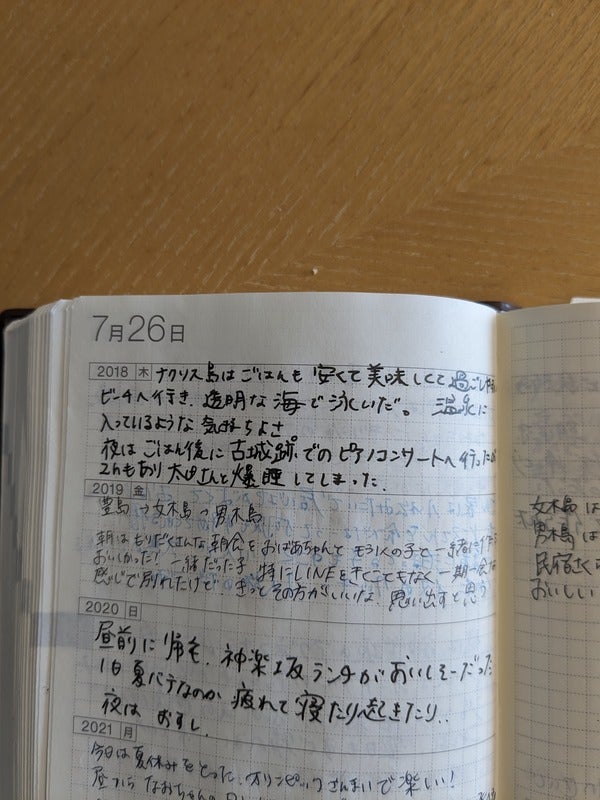 7月26日
2018 木 ナクソス島はごはんも安くて美味しくて過ごしやす
ビーチへ行き、透明な海で泳いだ。温泉に
入っているような気持ちよさ
夜はごはん後に古城跡でのピアノコンサートへ行ったが
2人もあり 太田さんと爆睡してしまった.
2019 金
豊島→女木島→男木島
朝はもりだくさんな朝食をおばあちゃんともう1人の子と一緒に
おいしかった! 一緒だった子、特にLINEをきくこともなく 一期一会な
感じで別れたけど きっとその方がいいな、思い出すと思う
2020 日
昼前に帰宅. 神楽坂ランチがおいしそーだった
1日夏バテなのか 疲れて寝たり起きたり..
夜は おすし.
2021 月
今日は夏休みをとった、オリンピックざんまいで楽しい!
昼から なおちゃんの
女木島は
男木島は
民宿さくら
おいしい